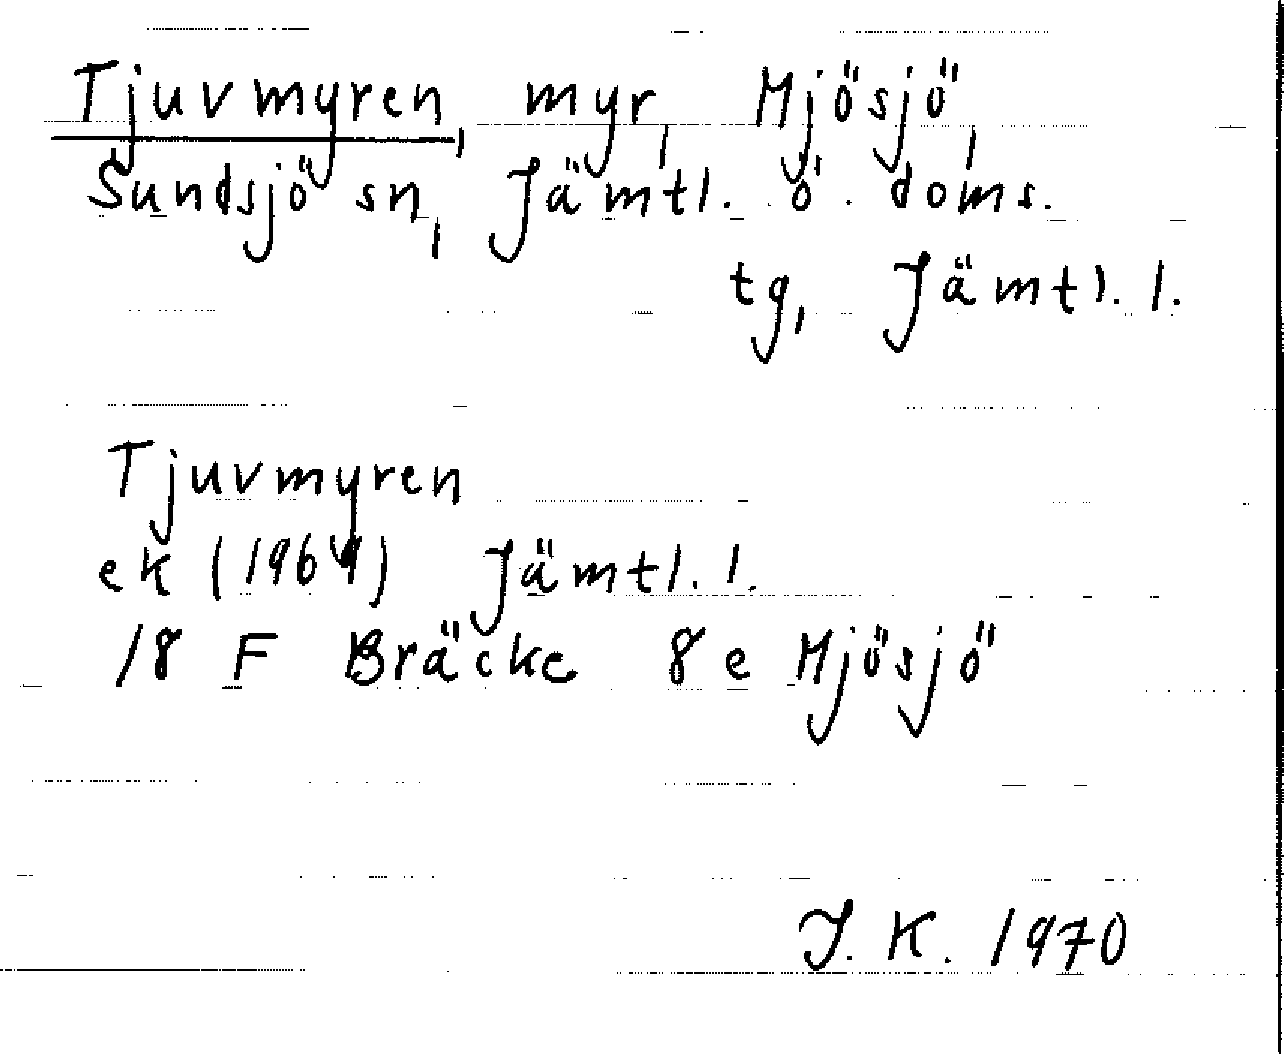 Tjuvmyren, myr, Mjösjö,
Sundsjö sn, Jämtl. ö. doms.
tg, Jämtl. l.
Tjuvmyren
ek (1969) Jämtl. l.
18 F Bräcke 8 e Mjösjö
J. K. 1970